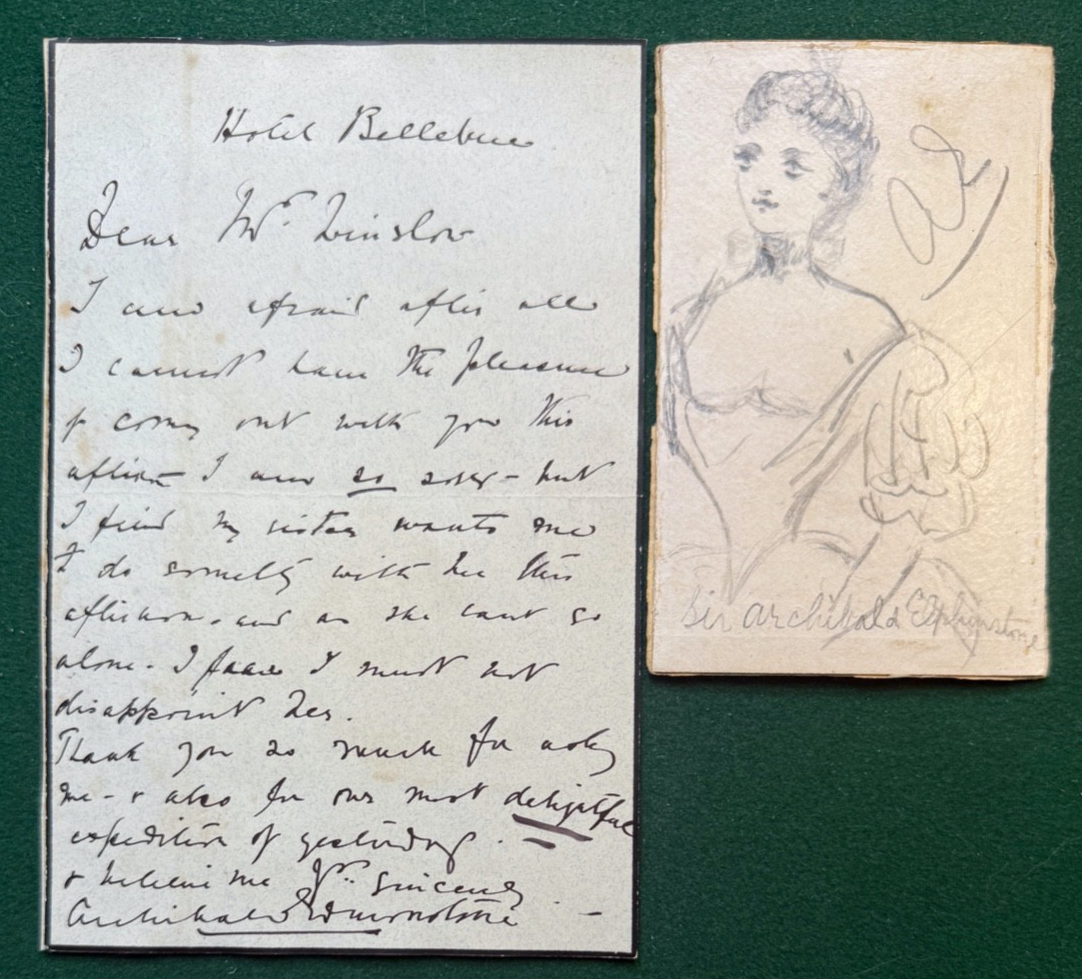 Hotel Bellevue
Dear Mr. Winslow
I am afraid after all
I cannot have the pleasure
of coming out with you this
aftern I am so sorry - but
I find my sister wants me
to do somethg with her this
afternoon - and as she cant go
alone - I fear I must not
disappoint her.
Thank you so much for askg
me - & also for our most delightful
expedition of yesterday.
& believe me Yrs. Sincerely
Archibald Edmonstone
Sir Archibald Elphinstone